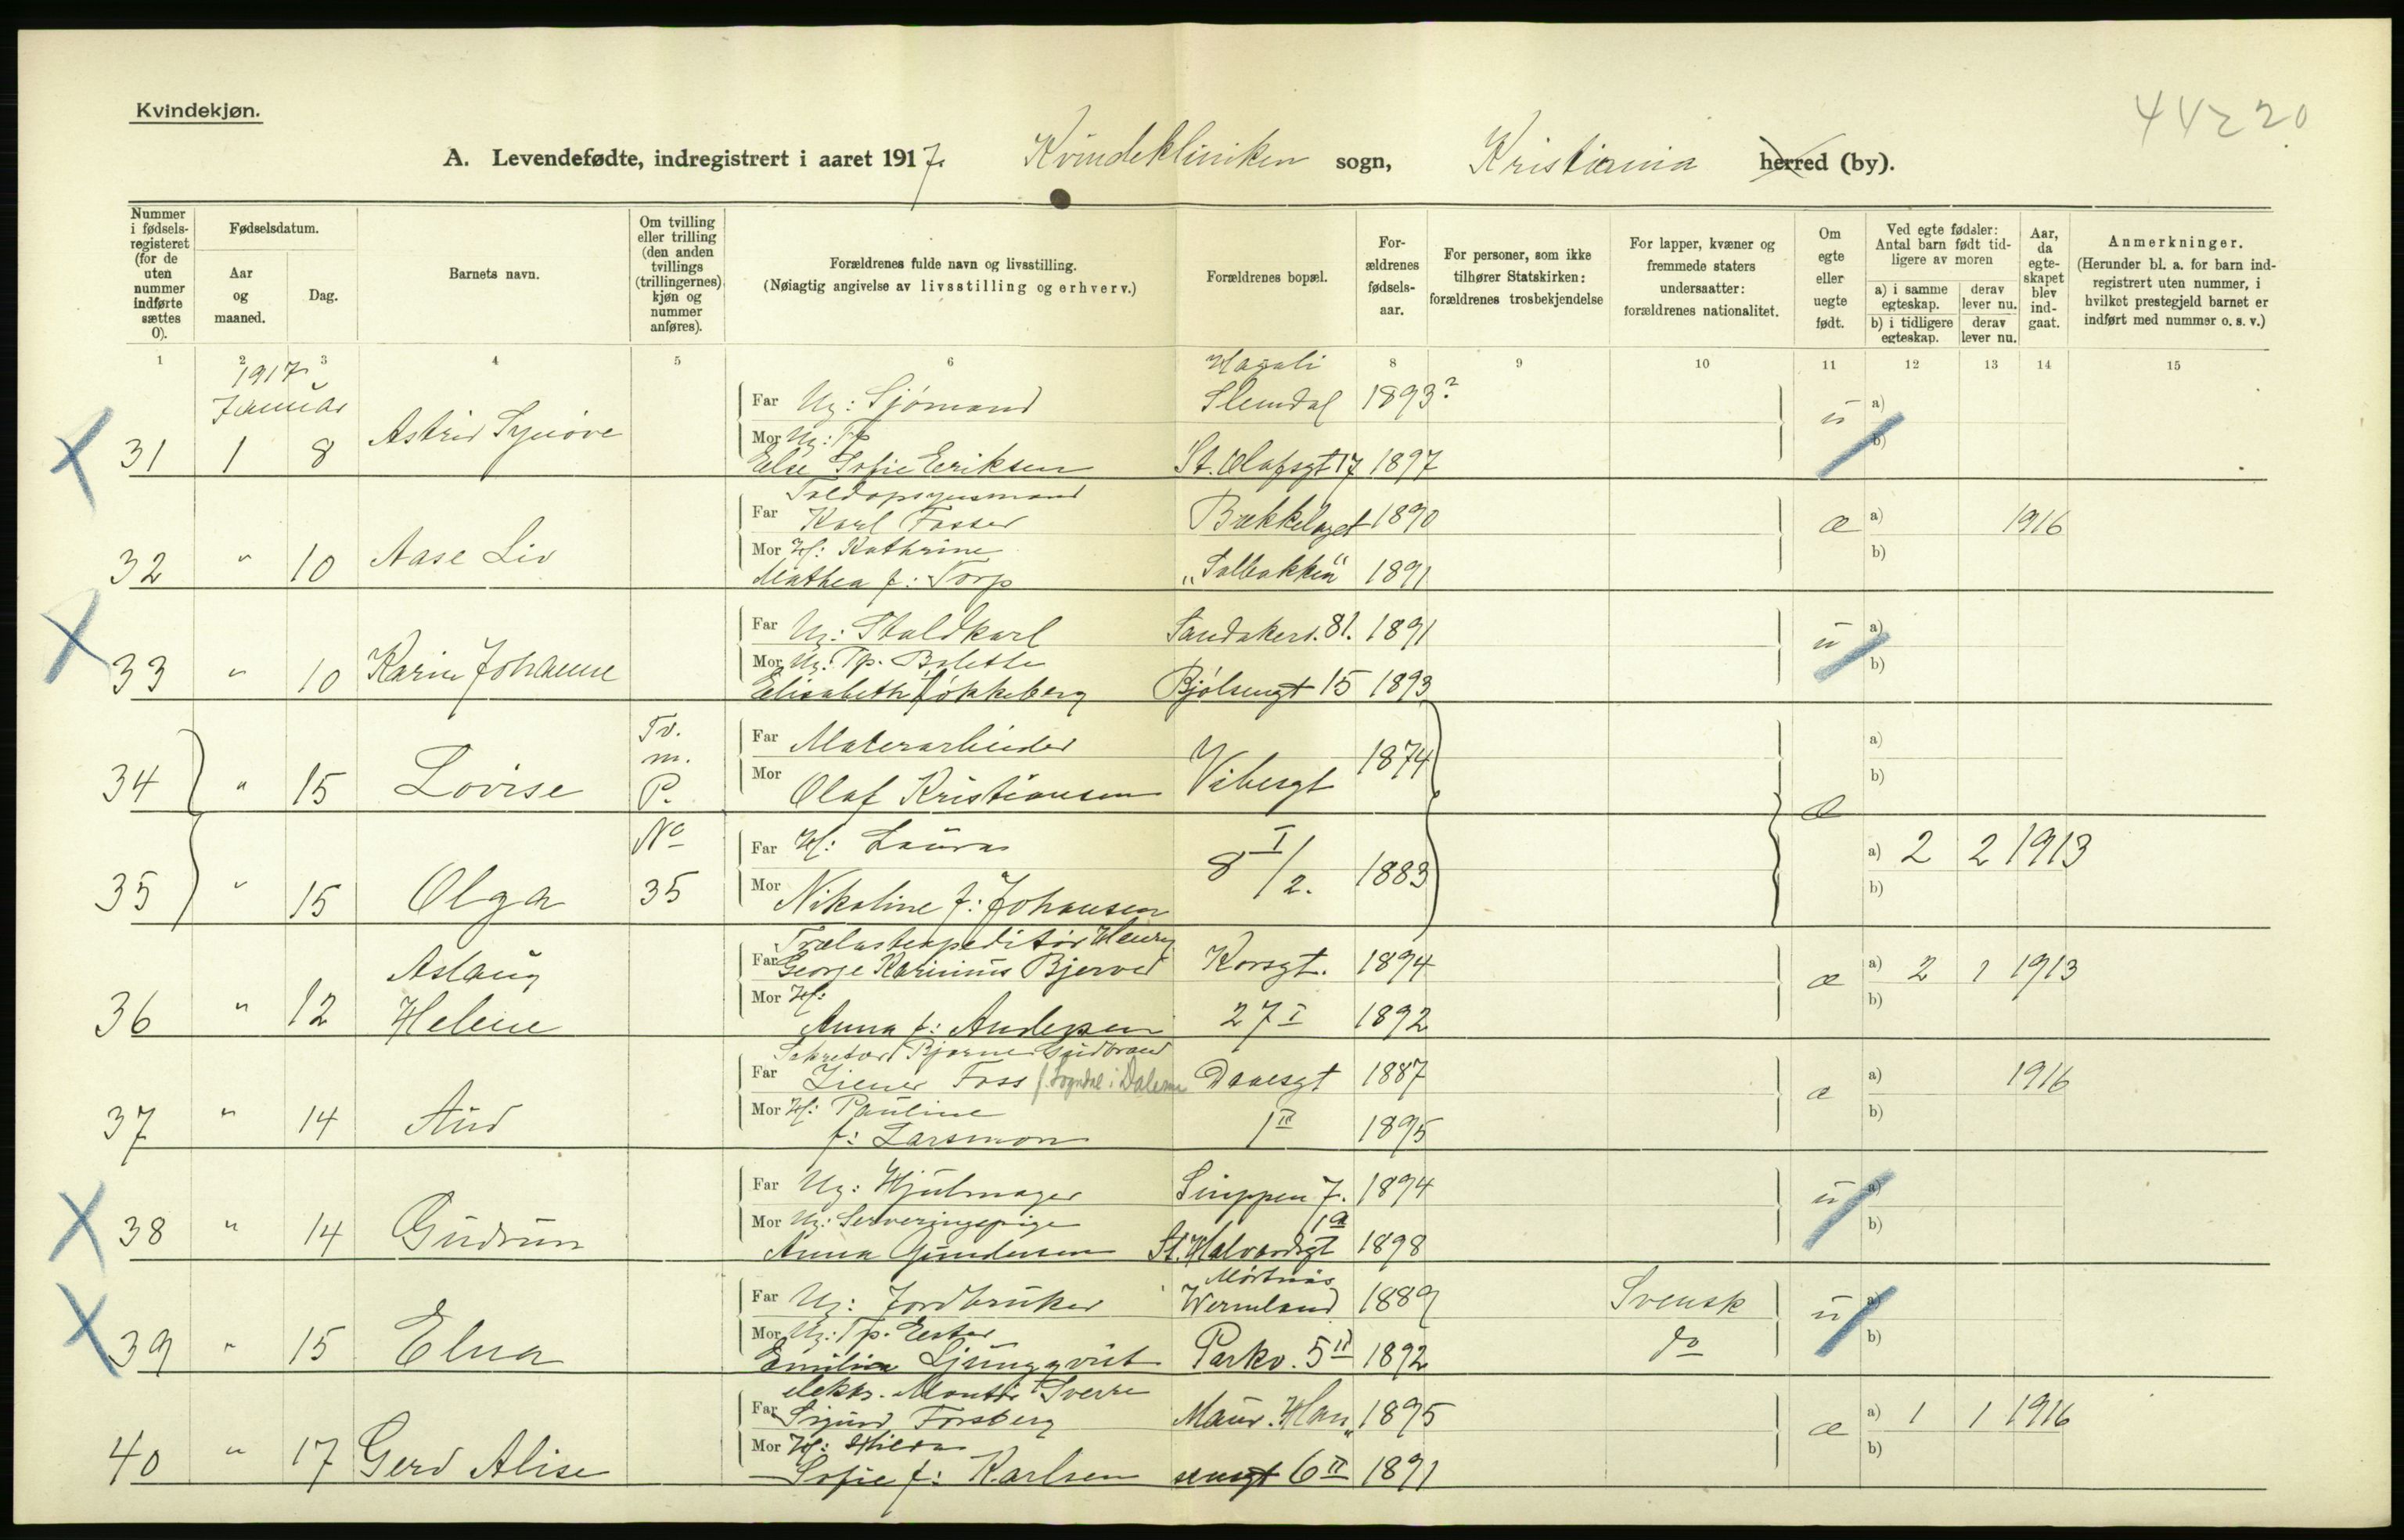 Kvindekjøn.
44220
A. Levendefødte, indregistrert i aaret 1917. Kvindekliniken sogn, Kristiania herred (by).
Nummer i fødsels-registeret (for de uten nummer indførte sættes 0).
Fødselsdatum.
Aar og maaned.
Dag.
Barnets navn.
Om tvilling eller trilling (den anden tvillings (trillingernes) kjøn og nummer anføres).
Forældrenes fulde navn og livsstilling.
(Nøiagtig angivelse av livsstilling og erhverv.)
Forældrenes bopæl.
For-ældrenes fødsels-aar.
For personer, som ikke tilhører Statskirken: forældrenes trosbekjendelse
For lapper, kvæner og fremmede staters undersaatter: forældrenes nationalitet.
Om egte eller uegte født.
Ved egte fødsler: Antal barn født tid-ligere av moren
a) i samme egteskap. derav lever nu.
b) i tidligere egteskap. derav lever nu.
Aar, da egte-skapet blev ind-gaat.
Anmerkninger.
(Herunder bl. a. for barn ind-registrert uten nummer, i hvilket prestegjeld barnet er indført med nummer o. s. v.)
1 2 3 4 5 6 8 9 10 11 12 13 14 15
1917
Januar
Far Ug: Sjømand Slemdal 1893? u a)
31 1 8 Astrid Synøve
Mor Ug: Tp b)
Else Sofie Eriksen St. Olafsgt 17 1897
Toldopsynsmand
Far Karl Fosser Bækkelaget 1890 æ a) 1916
32 " 10 Aase Liv
Mor H: Kathrine b)
Mathea f: Torp "Solbakken" 1891
Far Ug: Staldkarl Sandakerv. 81. 1891 u a)
33 " 10 Karin Johanne
Mor Ug: Tp. b)
Elisabeth Løkkeberg Bjølsengt 15 1893
34 " 15 Lovise Tv. m. P.
Far Malerarbeider 1874 a)
Mor Olaf Kristiansen Vibesgt æ b)
35 " 15 Olga No 35
Far H: Laura 8 I/2. 1883 a) 2 2 1913
Mor Nikoline f: Johansen b)
Trælastexpeditør Henry
Far George Karinius Bjerved Korsgt. 1894 æ a) 2 1 1913
36 " 12 Aslaug Helene
Mor H: b)
Anna f: Andersen 27 I 1892
Sekretær Bjarne Gudbrand
Far Ziener Foss f. Sogndal i Dalerne Daaesgt 1887 æ a) 1916
37 " 14 Aud
Mor H: Pauline b)
f: Larsmon 1 II 1895
Far Ug: Hjulmager Sinppen 7. 1894 u a)
38 " 14 Gudrun
Mor Ug: Serveringspige 1a b)
Anna Gundersen St. Halvardsgt 1898
Far Ug: Jordbruker Wermland 1889 Svensk u a)
39 " 15 Elna
Mor Ug: Tp. Ester do b)
Emilia Ljungqvist Parkv. 5 II 1892
elektr. Montør Sverre
Far Sigurd Forsberg Maur. Han 1895 æ a) 1 1 1916
40 " 17 Gerd Alise
Mor H: Hilda b)
Sofie f: Karlsen sensgt 6 II 1891